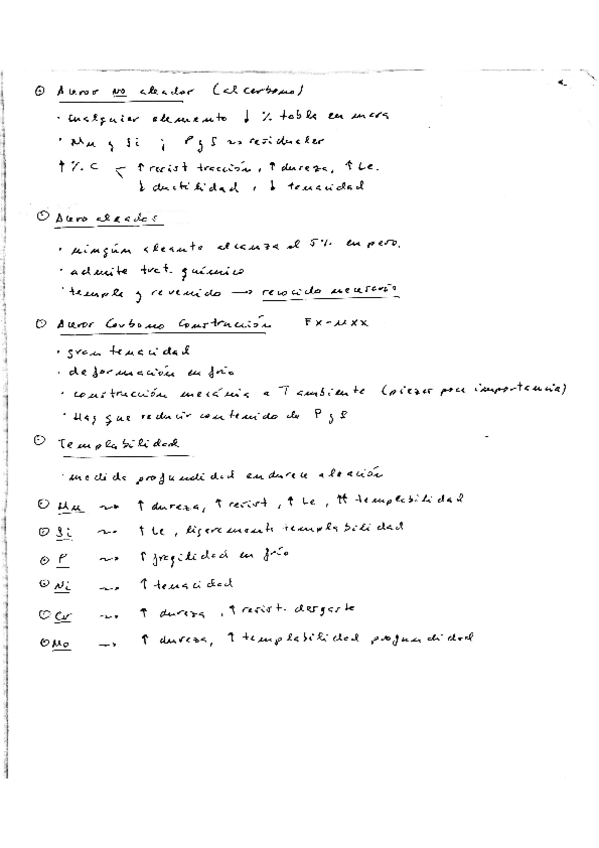 Aceros no aleados (al carbono)
· cualquier elemento ↓ % tabla en masa
· Mn y Si ; P y S ~> residuales
↑ % C < ↑ resist tracción, ↑ dureza, ↑ Le.
↓ ductilidad, ↓ tenacidad
Acero aleados
· ningún aleante alcanza el 5% en peso.
· admite trat. químico
· temple y revenido → recocido necesario
Aceros Carbono Construcción F X-nXX
· gran tenacidad
· deformación en frío
· construcción mecánia a T ambiente (piezas poca importancia)
· Hay que reducir contenido de P y S
Templabilidad
· medida profundidad endurec aleación
Mn ~> ↑ dureza, ↑ resist, ↑ Le, ↑↑ templabilidad
Si ~> ↑ Le, ligeramente templabilidad
P ~> ↑ fragilidad en frío
Ni ~> ↑ tenacidad
Cr ~> ↑ dureza, ↑ resist. desgaste
Mo ~> ↑ dureza, ↑ templabilidad profundidad